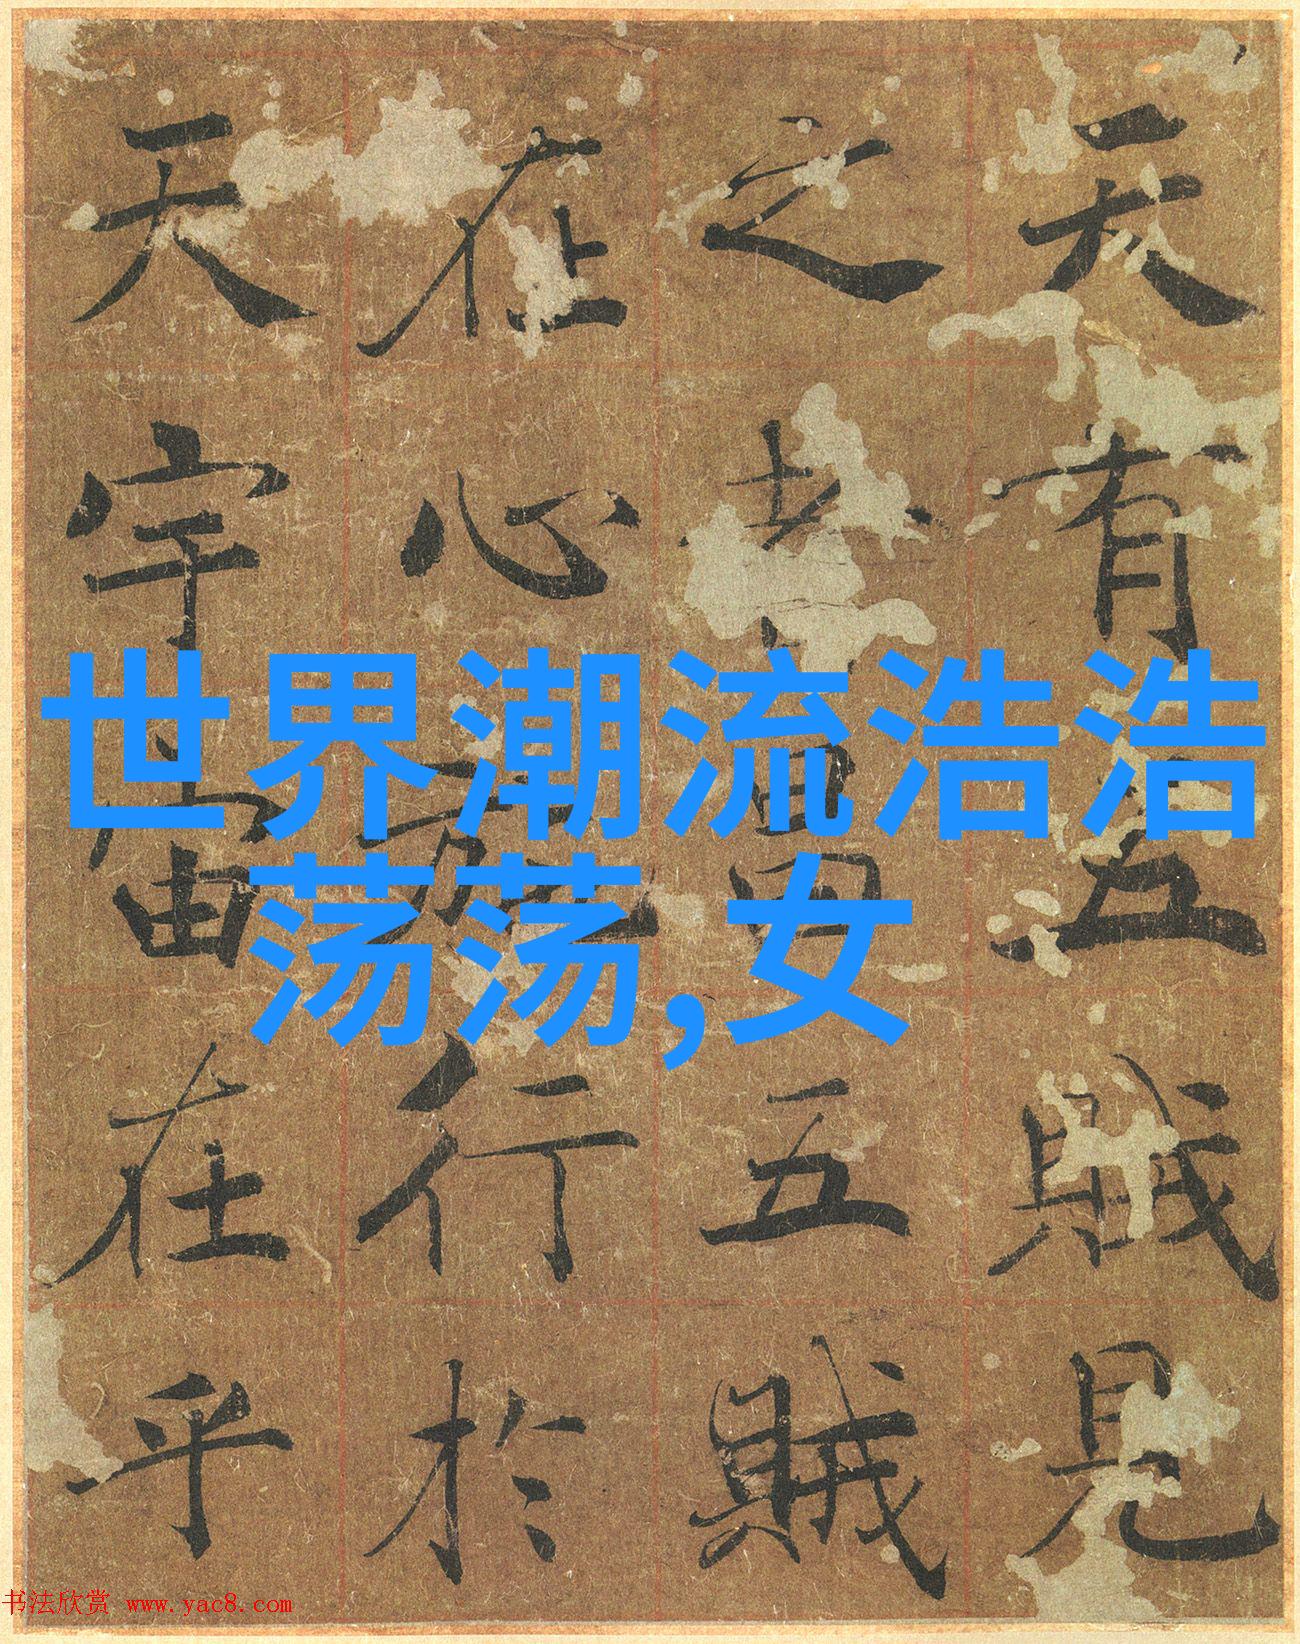 天有五賊見
之者昌五賊
在心施行於
天宇宙在乎
世界潮流浩浩
荡荡,女
书法欣赏 www.yac8.com